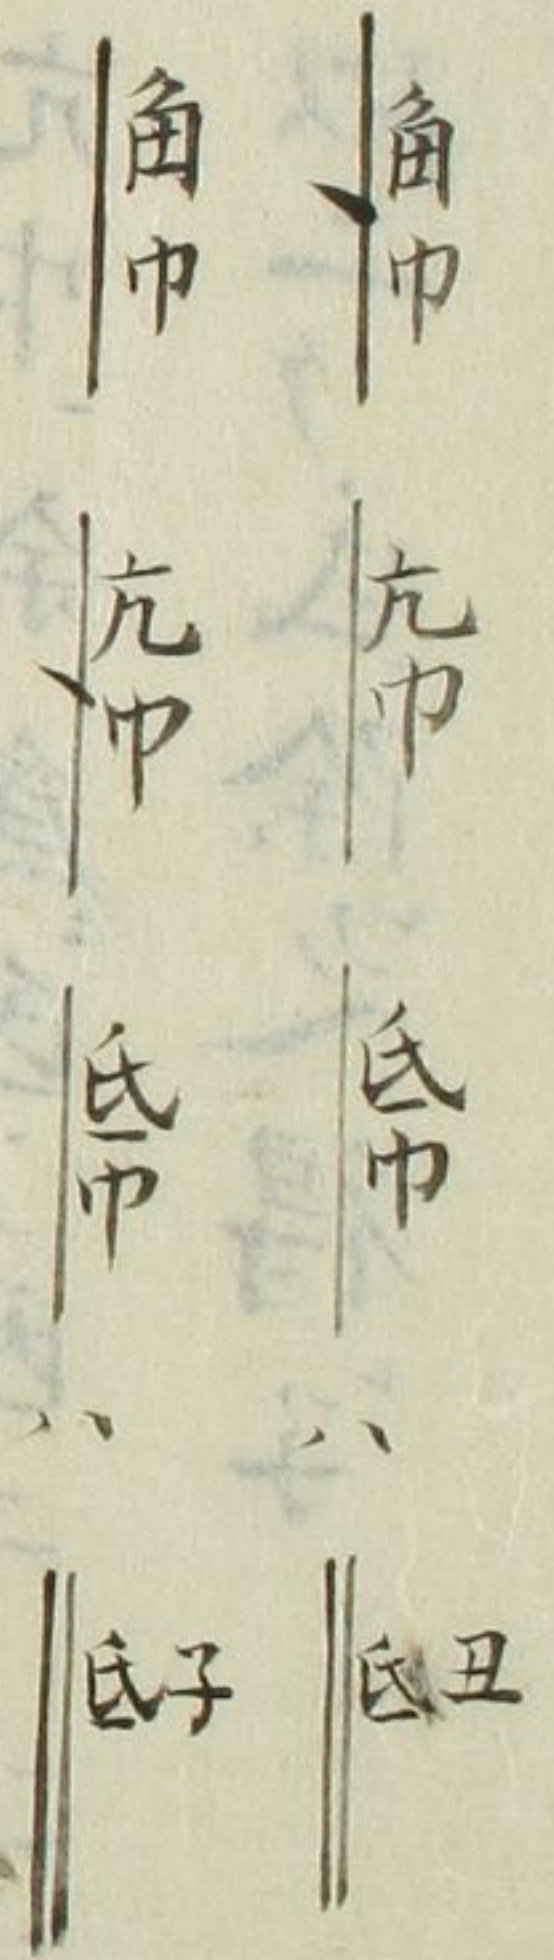 角巾 亢巾 氐巾 八 氐丑
角巾 亢巾 氐巾 八 氐子